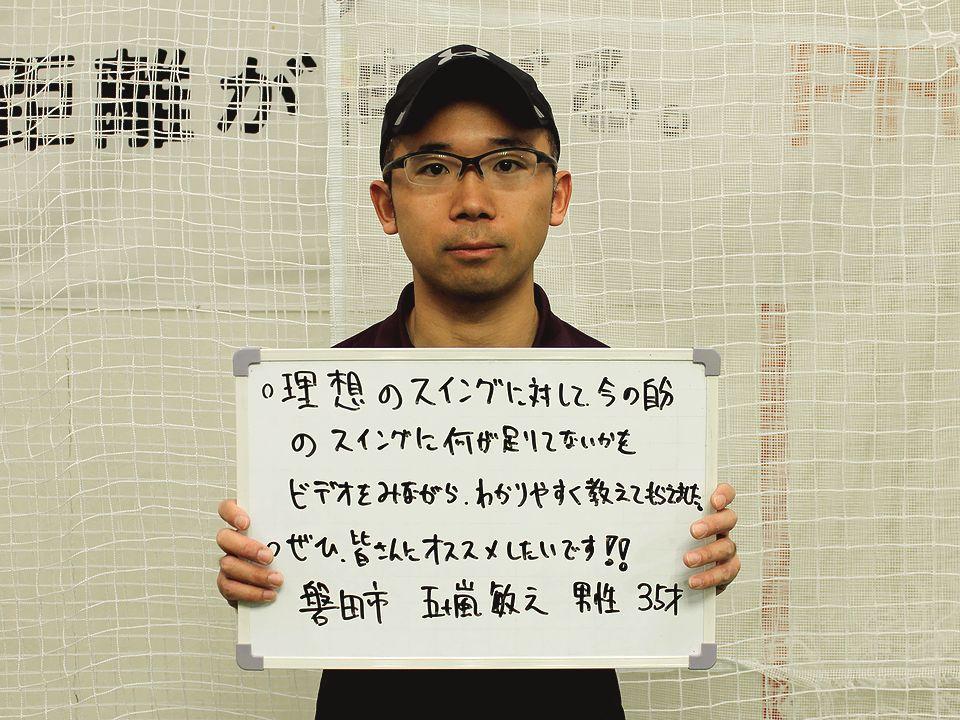 距離が
理想のスイングに対して、今の自分
のスイングに何が足りてないかを
ビデオをみながら、わかりやすく教えてもらえました。
ぜひ、皆さんにオススメしたいです!!
磐田市 五十嵐敏之 男性 35才